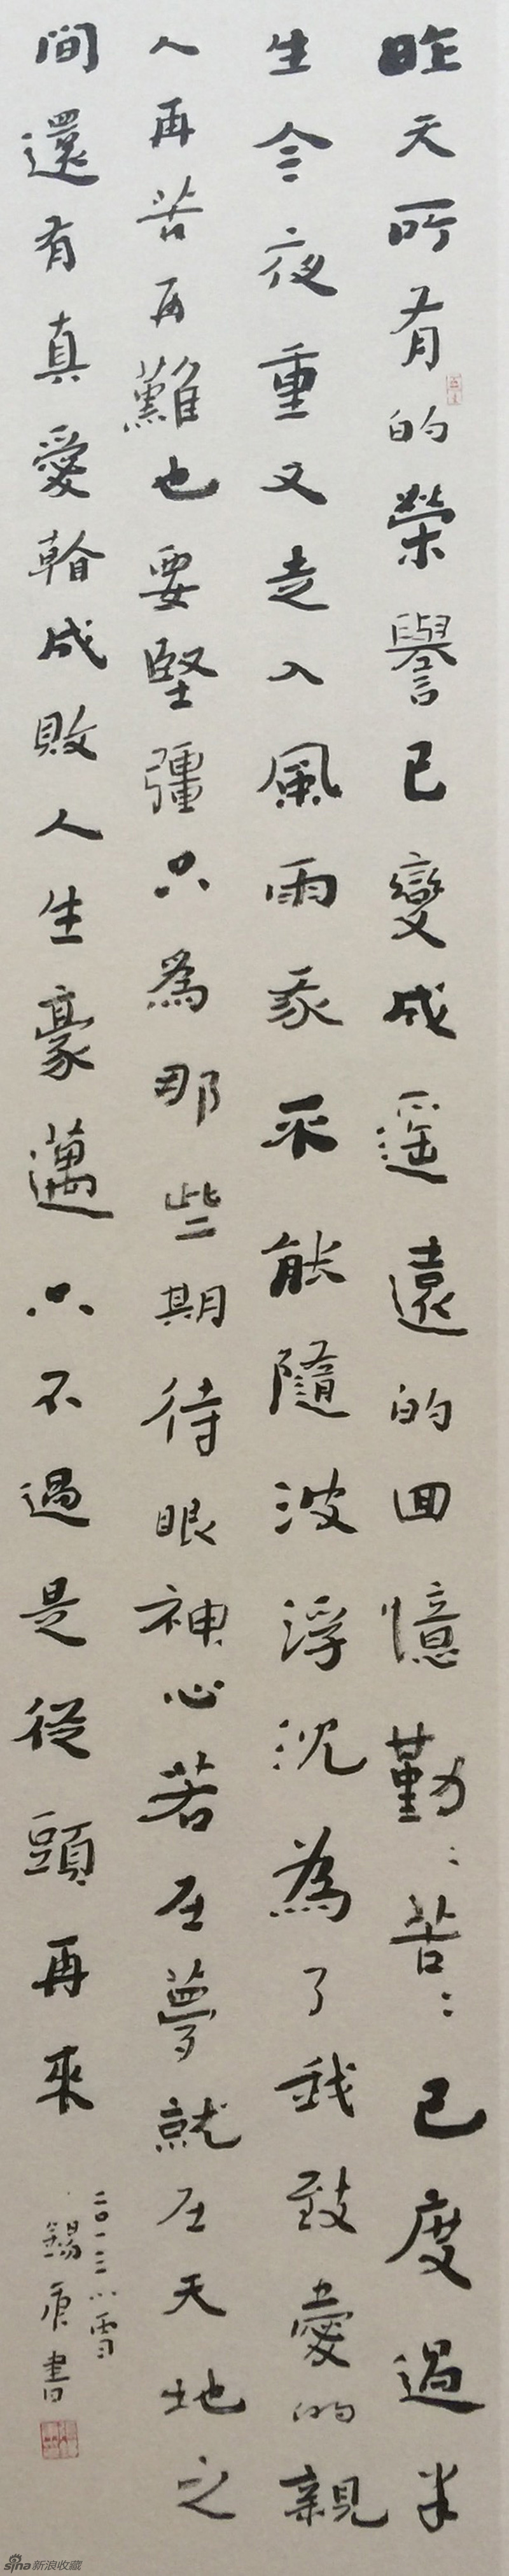 昨天所有的榮譽已變成遥遠的回憶勤〻苦〻已度過半
生今夜重又走入風雨我不能隨波浮沈為了我致愛的親
人再苦再難也要堅彊只為那些期待眼神心若在夢就在天地之
間還有真愛看成敗人生豪邁只不過是從頭再來
二〇一三小雪
錫庚書
sina新浪收藏